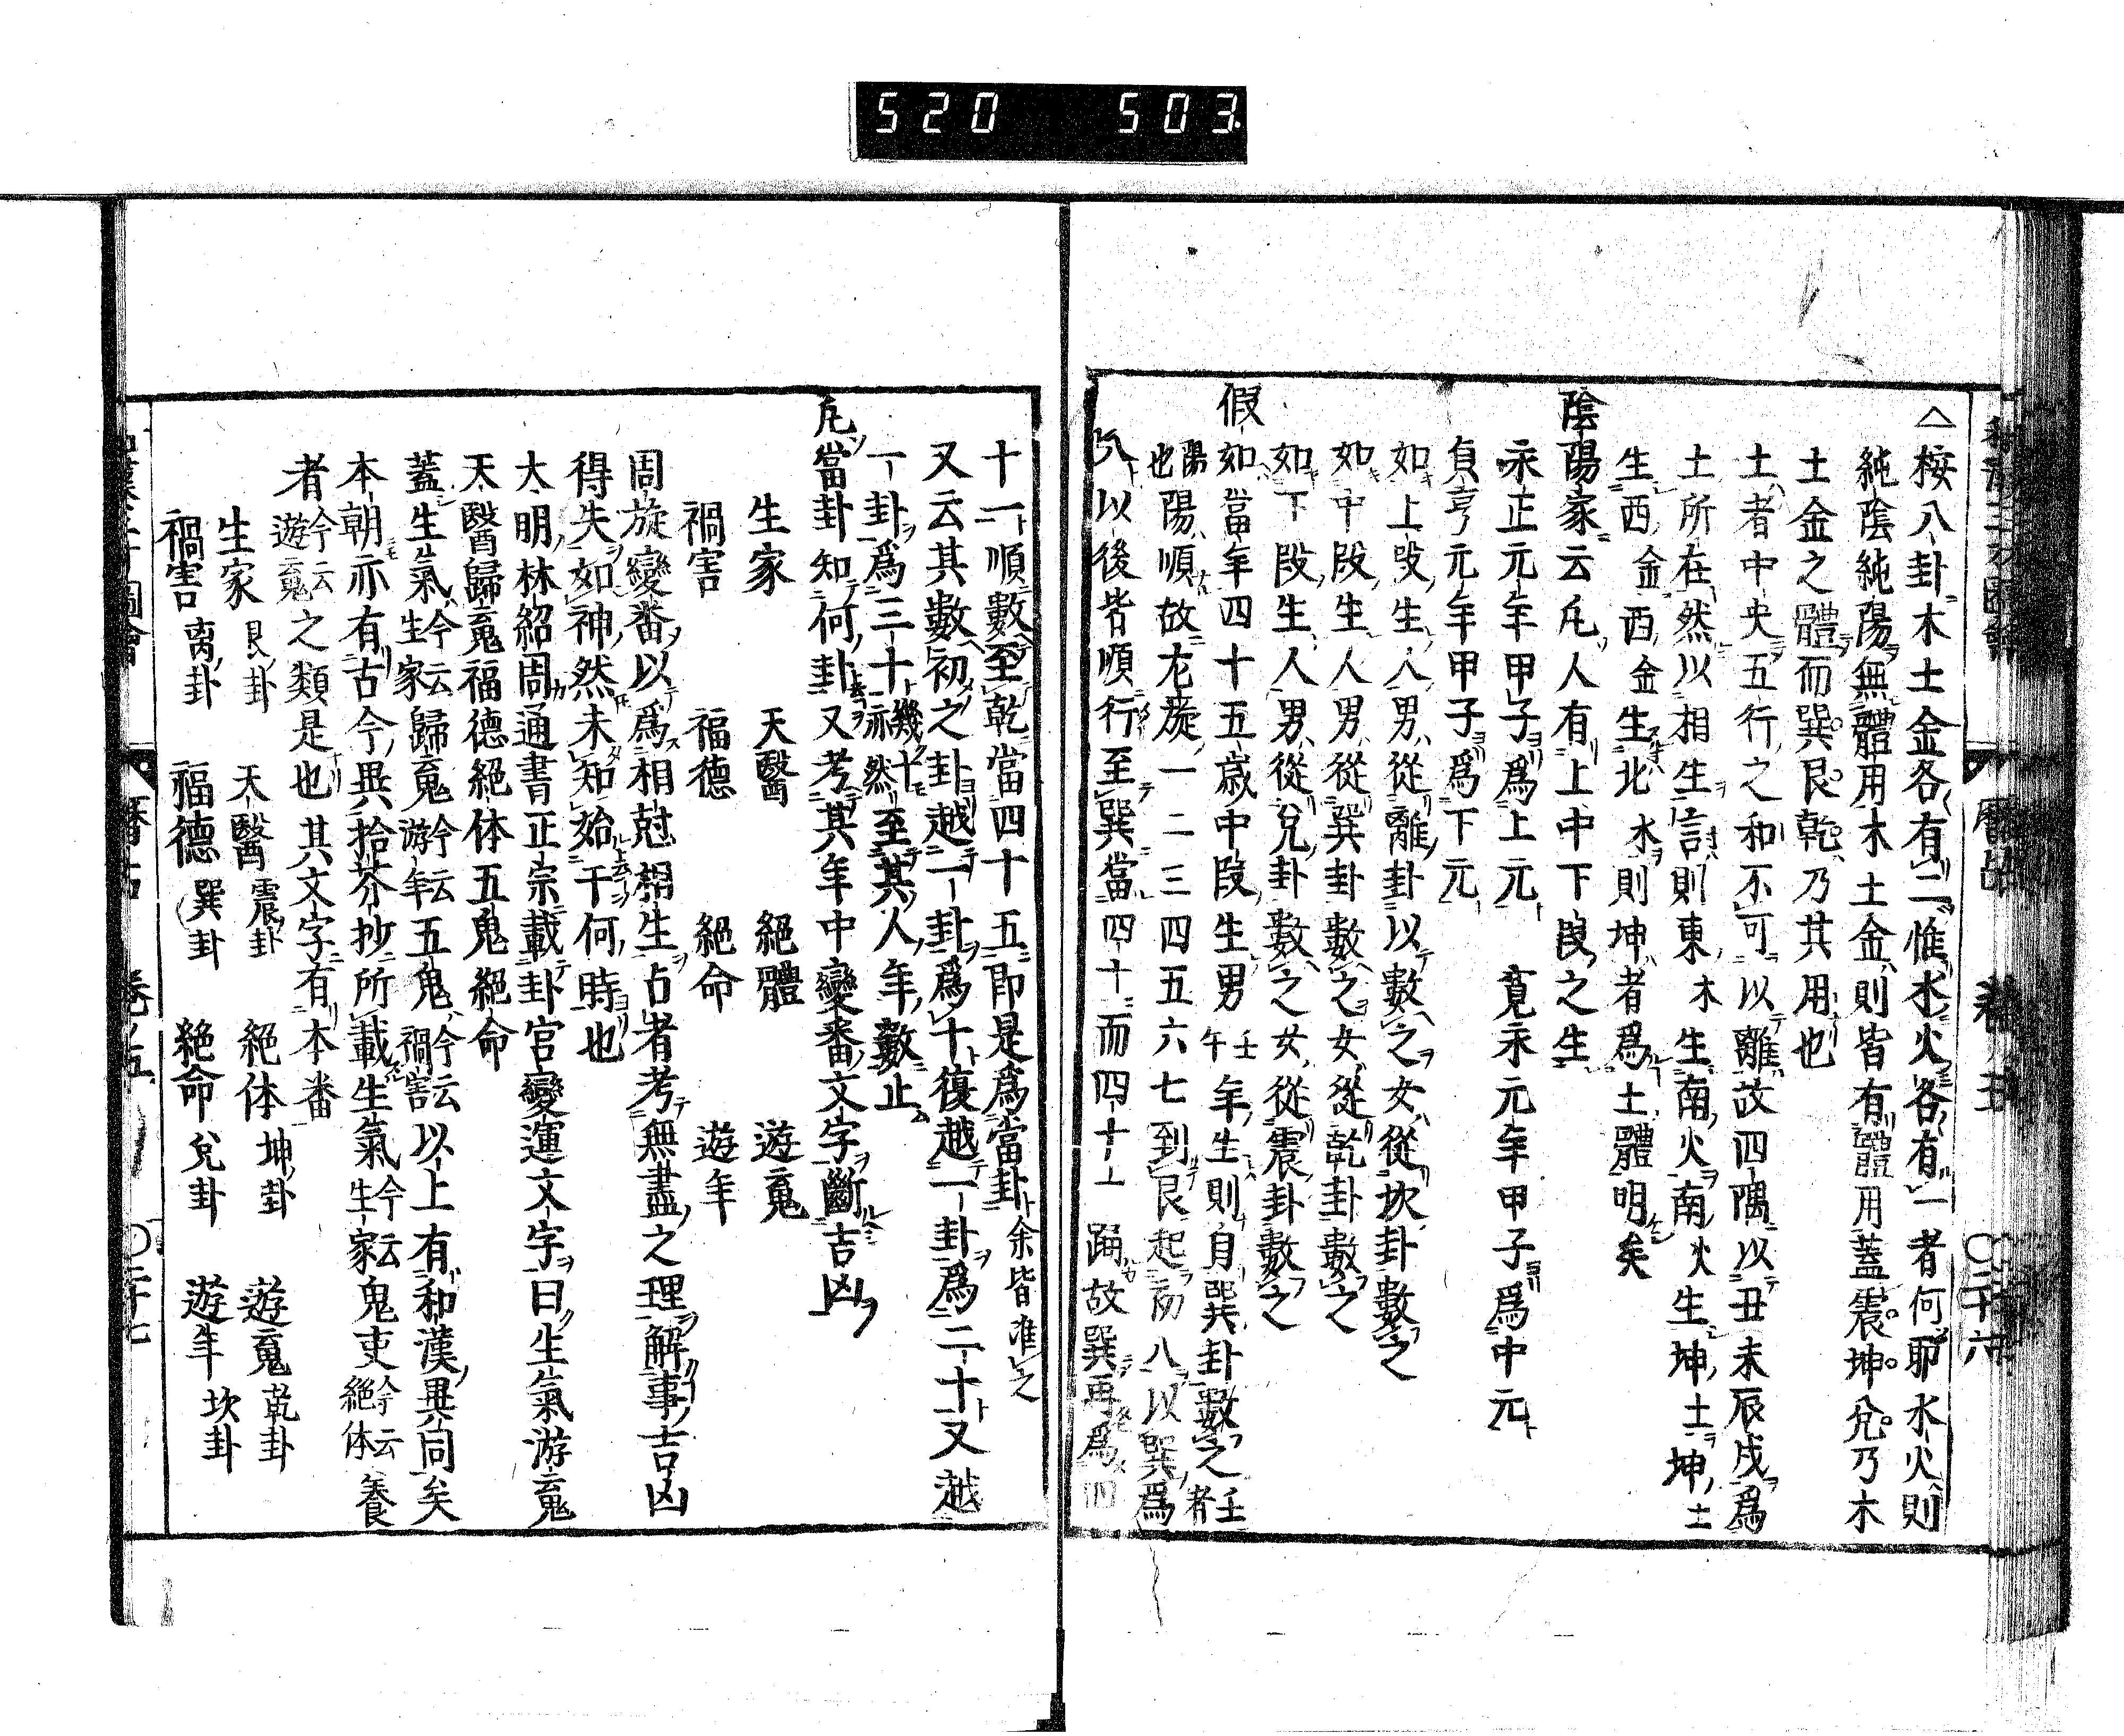 520 503
△按八卦木土金各有二惟水火各有一者何耶水火則
純陰純陽無體用木土金則皆有體用蓋震坤兌乃木
土金之體而巽艮乾乃其用也
土者中央五行之和不可以離故四隅以丑未辰戌爲
土所在然以相生言則東木生南火南火生坤土坤土
生西金西金生北水則坤者爲土體明矣
陰陽家云凡人有上中下段之生
永正元年甲子爲上元 寛永元年甲子爲中元
貞享元年甲子爲下元
如上段生人男從離卦以數之女從坎卦數之
如中段生人男從巽卦數之女從乾卦數之
如下段生人男從兌卦數之女從震卦數之
假如當年四十五歳中段生男壬午年生則自巽卦數之壬者
陽也陽順故左旋一二三四五六七到艮起初八以巽爲
八以後皆順行至巽當四十而四十一踊故巽再爲四
十一順數至乾當四十五即是爲當卦余皆准之
又云其數初之卦越一卦爲十復越一卦爲二十又越
一卦爲三十幾十亦然至其人年數止
凡當卦知何卦又考其年中變番文字斷吉凶
生家 天醫 絕體 遊䰟
禍害 福德 絕命 遊年
周旋變番以爲相尅相生占者考無盡之理解事吉凶
得失如神然未知始于何時也
大明林紹周通書正宗載卦宮變運文字曰生氣游䰟
天醫歸䰟福德絕体五鬼絕命
蓋生氣今云生家歸䰟今云游年五鬼今云禍害以上有和漢異同矣
本朝亦有古今異拾芥抄所載生氣今云生家鬼吏今云絕体養
者今云遊䰟之類是也其文字有本番
生家艮卦 天醫震卦 絕体坤卦 遊䰟乾卦
禍害离卦 福德巽卦 絕命兌卦 遊年坎卦